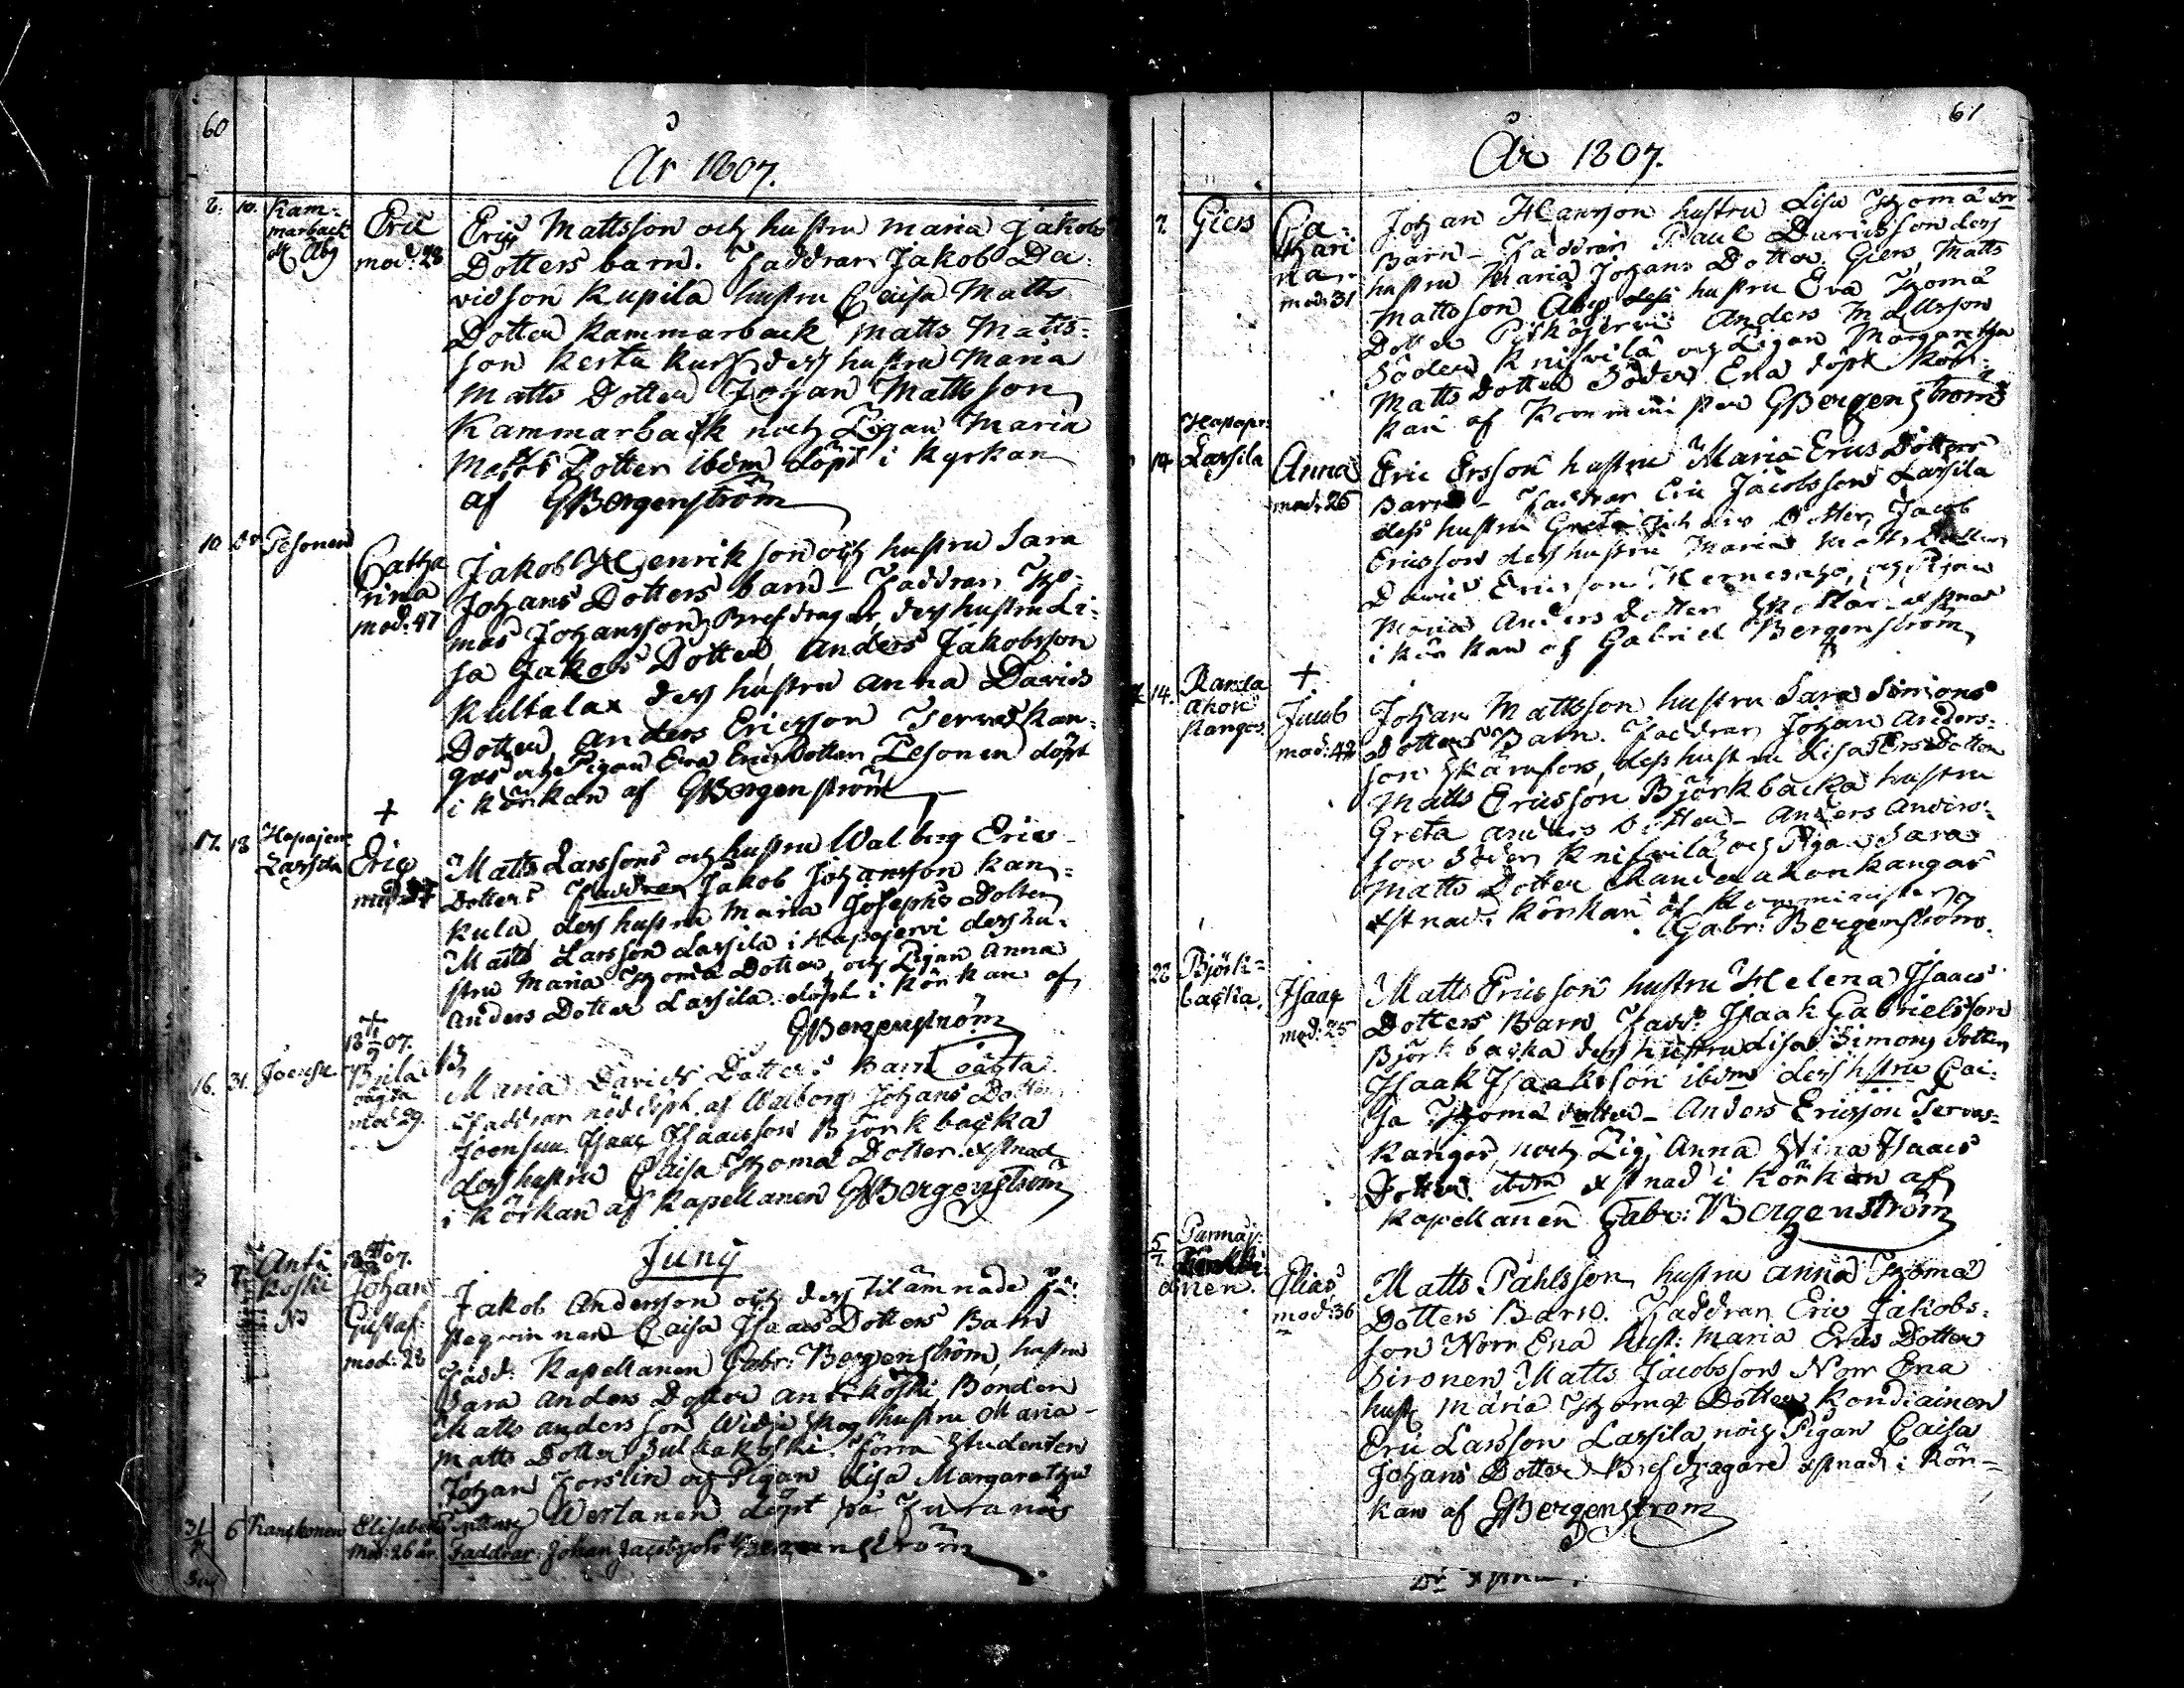 60
År 1807.
8. 10. Kam-
marback
Åby
Eric
mod: 28
Eric Mattsson och hustru Maria Jakobs
Dotters barn. Faddrar Jakob Da-
vidson Kupila hustru Caisa Matts
Dotter Kammarback Matts Matts-
son Kerttu dess hustru Maria
Matts Dotter Johan Mattsson
Kammarback och Pigan Maria
Matts Dotter ibdm döpt i Kyrkan
af GBergenström
10. Do Pesonen
Catha
rina
mod: 47
Jakob Henriksson och hustru Sara
Johans Dotters barn – Faddrar Tho-
mas Johansson Brefdragar, dess hustru Li-
sa Jakobs Dotter, Anders Jakobsson
Kultalax dess hustru Anna Davids
Dotter, Anders Ericsson Tervaskan-
gas och Pigan Eva Erics Dotter Pesonen döpt
i körkan af GBergenström
+
17. 18 Hapajerv
Lassila
Eric
Matts Larssons och hustru Walborg Erics
Dotters Faddrar Jakob Johansson Kan-
kula dess hustru Maria Josephs Dotter
Matts Larsson Lassila i Hapajervi dess hu-
stru Maria Thomæ Dotter, och Pigan Anna
Anders Dotter Lassila. döpt i körkan af
GBergenström
18 07.
16. 31. Joensu
oägta
mod 29.
Maria Davids Dotters Barn oägta
Faddrar nöddöpt af Walborg Johans Dotter
Joensuu Isaac Isaacsson Björkbacka
dess hustru Caisa Thomæ Dotter. xstnad
i körkan af Kapellanen GBergenström
Junij
3 7. Anti
koski
No
18 07.
Johan
Gustaf
mod: 28
Jakob Andersson och dess tilämnade Fä-
steqvinnan Caisa Isaacs Dotters Barn
Fadd: Kapellanen Gabr: Bergenström, hustru
Sara Anders Dotter Antikoski Bonden
Matts Andersson Widjeskog hustru Maria
Matts Dotter Sulkakoski förra Studenten
Johan Forslin och Pigan Lisa Margaretha
Wertanen döpt på Furunäs
31 6 Elisabeth
Mod: 26 år. Faddrar: Johan Jacobsson Bergenström
61
År 1807.
7. Giers
Ca-
thari
na
mod: 31
Johan Hansson hustru Lisa Thomæ Dr
Barn – Faddrar Paul Davidsson dess
hustru Maria Johans Dotter. Giers, Matts
Mattsson Åby dess hustru Eva Thomæ
Dotter Pitkäjervi Anders Mattsson
Söder Knifvilä och Pigan Margaretha
Matts Dotter Söder Ena döpt i kör-
kan af Komminister GBergenström
Hapajer:
14 Lassila
Anna
mod: 26
Eric Ersson hustru Maria Erics Dotters
Barn – Faddrar Eric Jacobsson Lassila
dess hustru Greta Johans Dotter, Jacob
Ericsson dess hustru Maria Matts Dotter
David Ericsson Hernesaho, och Pigan
Maria Anders Dotter xstnad
i körkan af Gabriel Bergenström
14. Randa
ahon
Kangas
+
Jacob
mod: 42
Johan Mattsson hustru Sara Simons
Dotters Barn. Faddrar Johan Anders-
son Skärafors, dess hustru Lisa Ers Dotter
Matts Ericsson Björkbacka hustru
Greta Anders Dotter – Anders Anders-
son Söder Knifvilä och Pigan Sara
Matts Dotter Randa ahon kangas
xstnad i körkan af Komminister
Gabr: Bergenström.
22 Björk-
backa.
Isaac
mod: 25
Matts Ericsson hustru Helena Isaacs
Dotters Barn Fadd: Isaak Gabrielsson
Björkbacka dess hustru Lisa Simons dotter
Isaak Isaaksson ibdm dess hstru Cai-
sa Thomæ dotter – Anders Ericsson Tervas-
kangas, och Pig: Anna Stina Isaacs
Dotter ibdm xstnad i körkan af
Kapellanen Gabr: Bergenström
5/7. Parmaj:
Elias
mod: 36
Matts Påhlsson hustru Anna Thomæ
Dotters Barn. Faddrar Eric Jakobs-
son Norr Ena hust: Maria Erics Dotter
Sironen Matts Jacobsson Norr Ena
hust Maria Thomæ Dotter Kondiainen
Eric Larsson Lassila och Pigan Caisa
Johans Dotter Brefdragare xstnad i kör-
kan af GBergenström